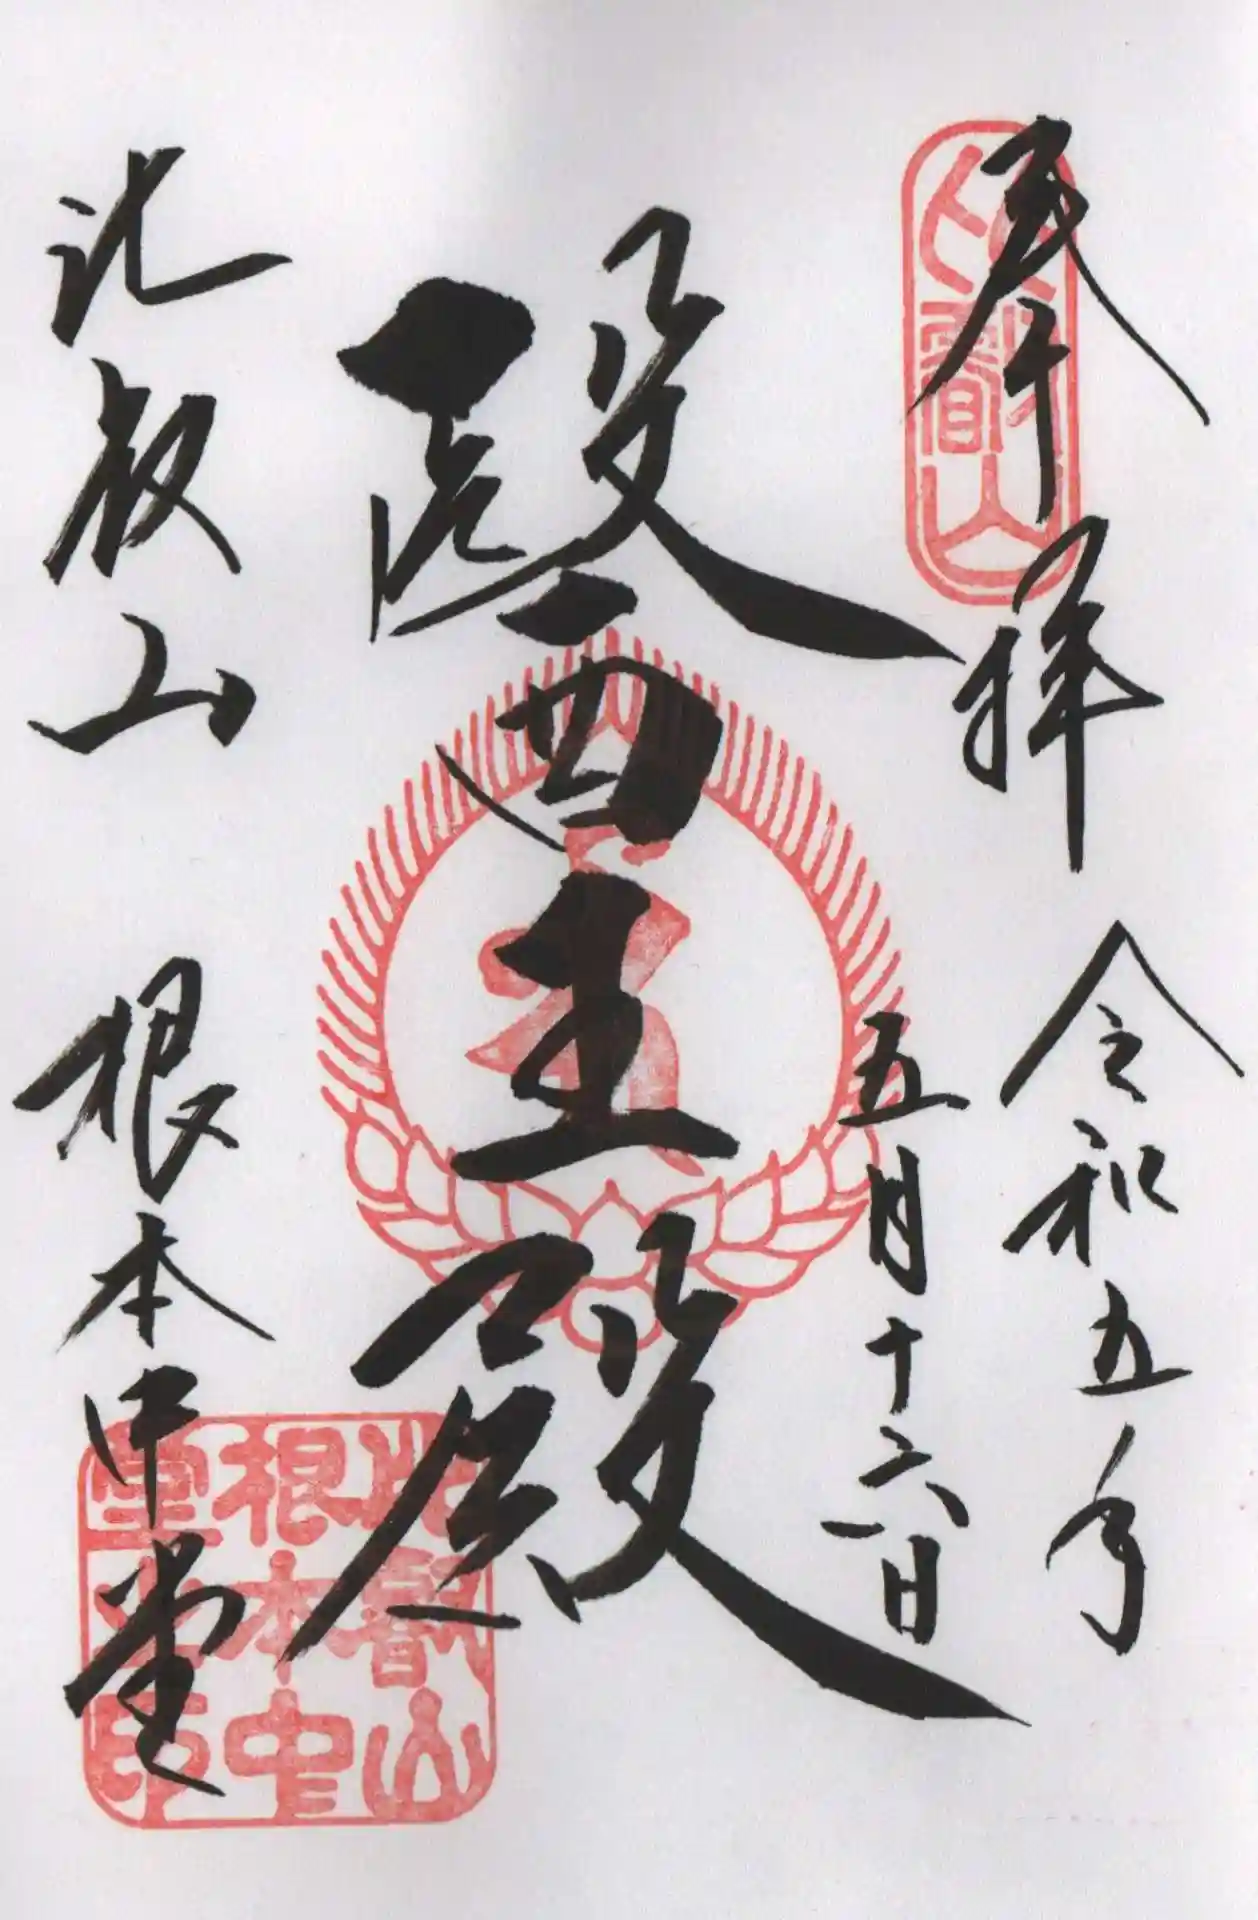 奉拝
令和五年
五月十六日
醫王殿
比叡山
根本中堂
比叡山
比叡山
根本中
堂之印